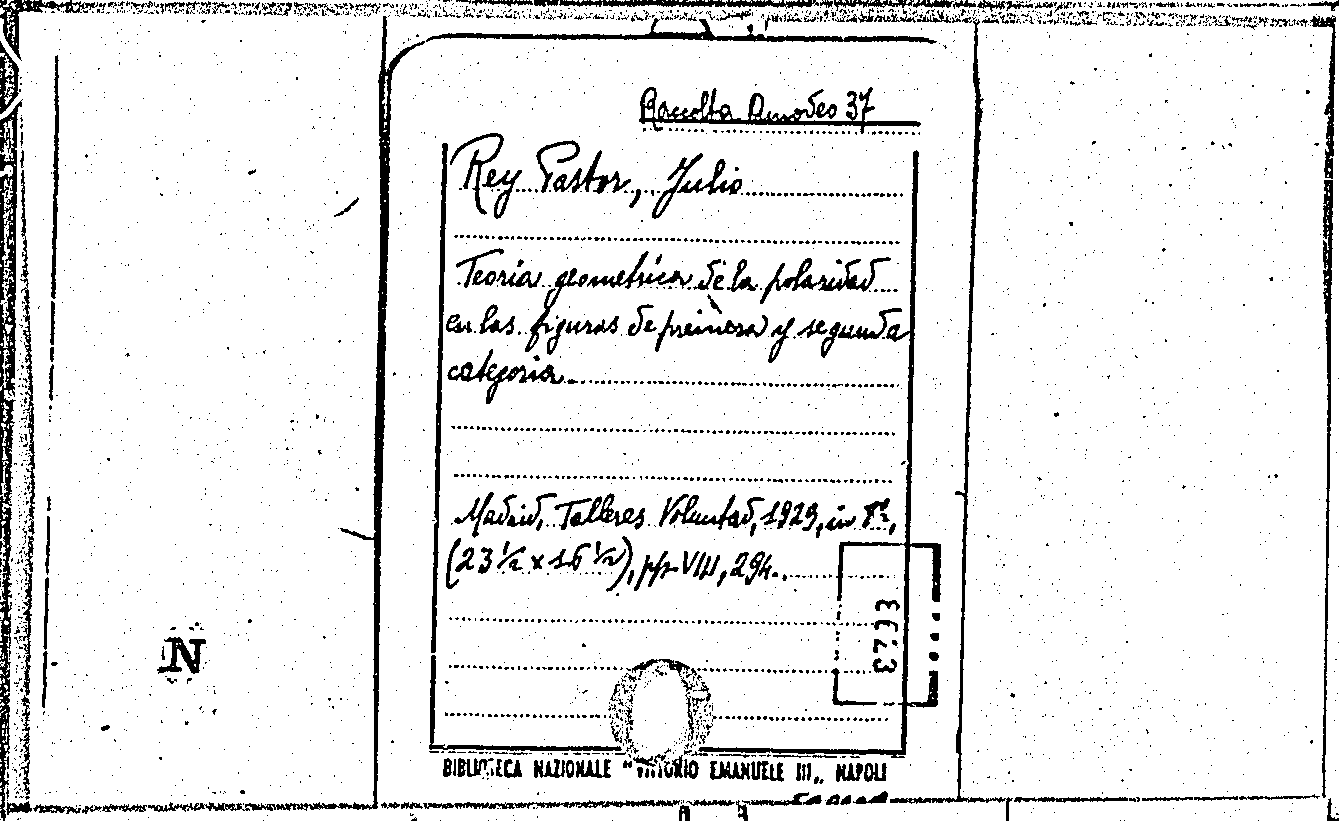 Raccolta Amodeo 37
Rey Pastor, Julio
Teoria geometrica de la polaridad
en las figuras de primera y segunda
categoria.
Madrid, Talleres Voluntad, 1929, in 8º,
(23 ½ x 16 ½), pp. VIII, 294.
N
BIBLIOTECA NAZIONALE "VITTORIO EMANUELE III„ NAPOLI